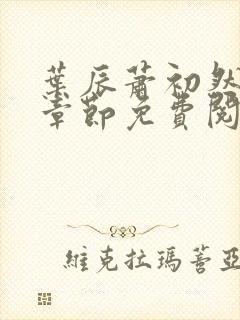 葉辰蕭初然
章節免費閱
維克拉瑪蓍亞